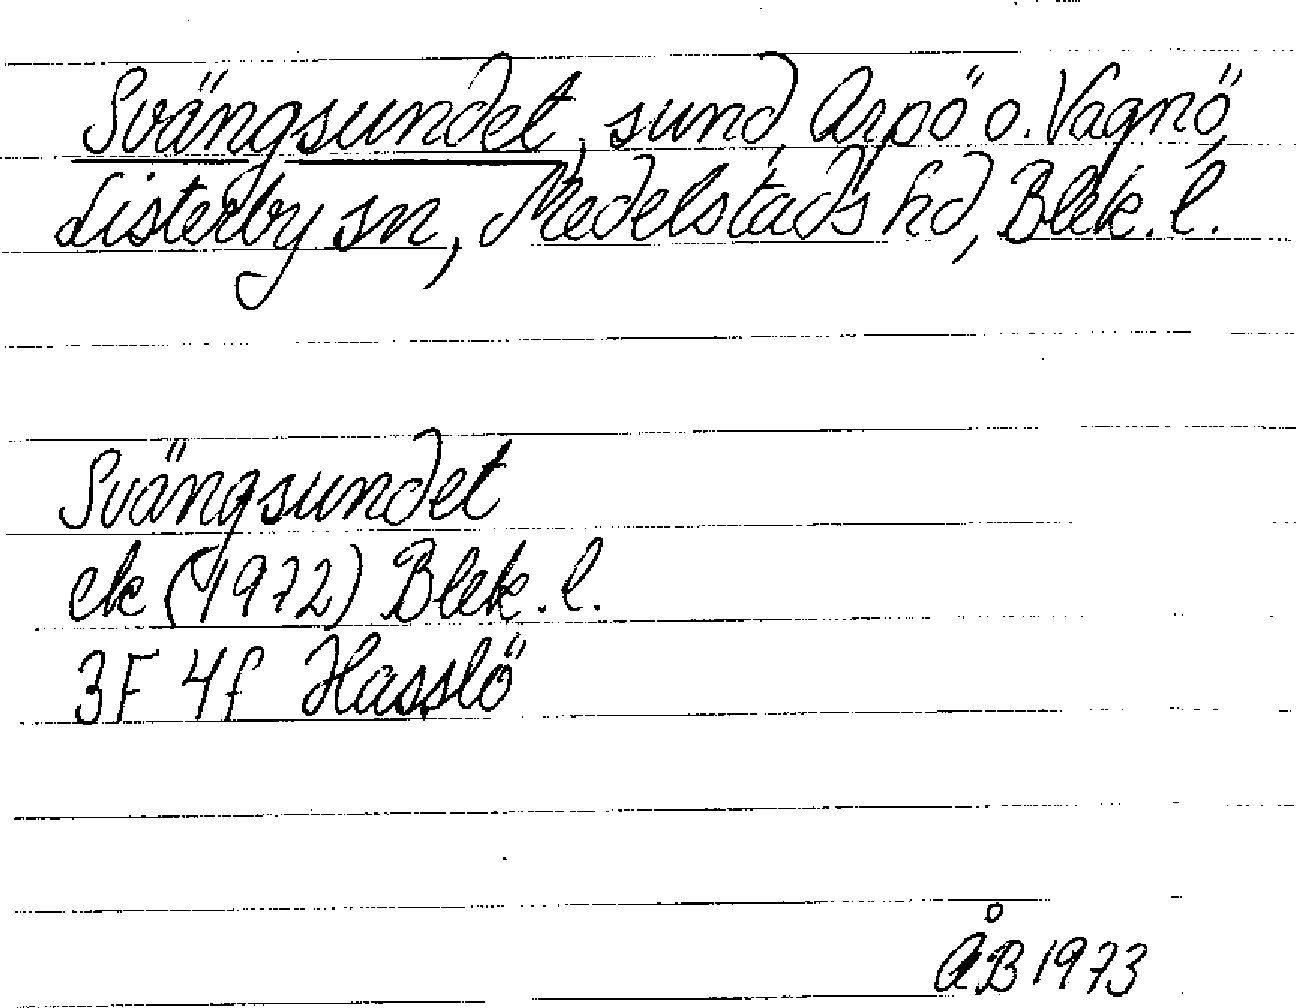 Svängsundet, sund, Arpö o. Vagnö,
Listerby sn, Medelstads hd, Blek. l.
Svängsundet
ek (1972) Blek. l.
3F 4f Hasslö
ÅB 1973